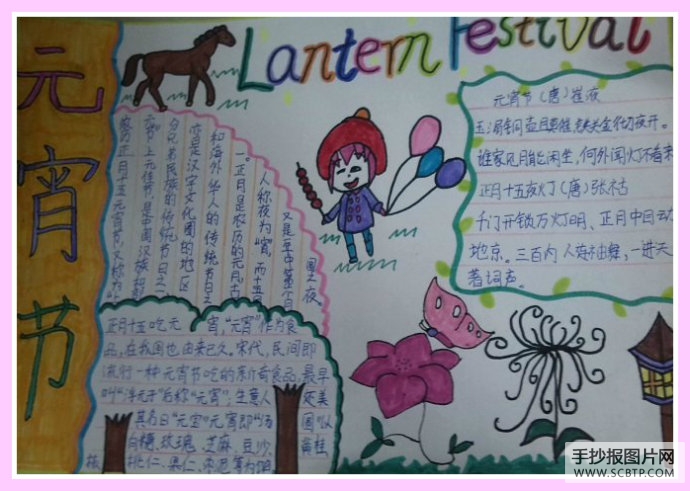 元宵节
Lantern Festival
元宵节(唐)崔液
玉漏铜壶且莫催,铁关金锁彻夜开。
谁家见月能闲坐,何处闻灯不看来
正月十五夜灯(唐)张祜
千门开锁万灯明、正月中旬动
地京。三百内人连袖舞,一进天
著词声。
国之夜。
又是至中第一个月
人称夜为“宵,而十五
一。正月是农历的元月,古
和海外华人的传统节日之
宵是汉字文化圈的地区
分兄弟民族的传统节日之
元节”上元佳节,是中国汉族和部
农历正月十五元宵节,又称为“上
正月十五吃元宵,“元宵”作为食
品,在我国也由来已久。宋代,民间即
流行一种元宵节吃的新奇食品,最早
叫“浮元子”后称“元宵”,生意人还美
其名曰“元宝”元宵即“汤圆”以
白糖、玫瑰、芝麻、豆沙、黄桂
核桃仁、果仁、枣泥等为馅。
手抄报图片网
WWW.SCBTP.COM